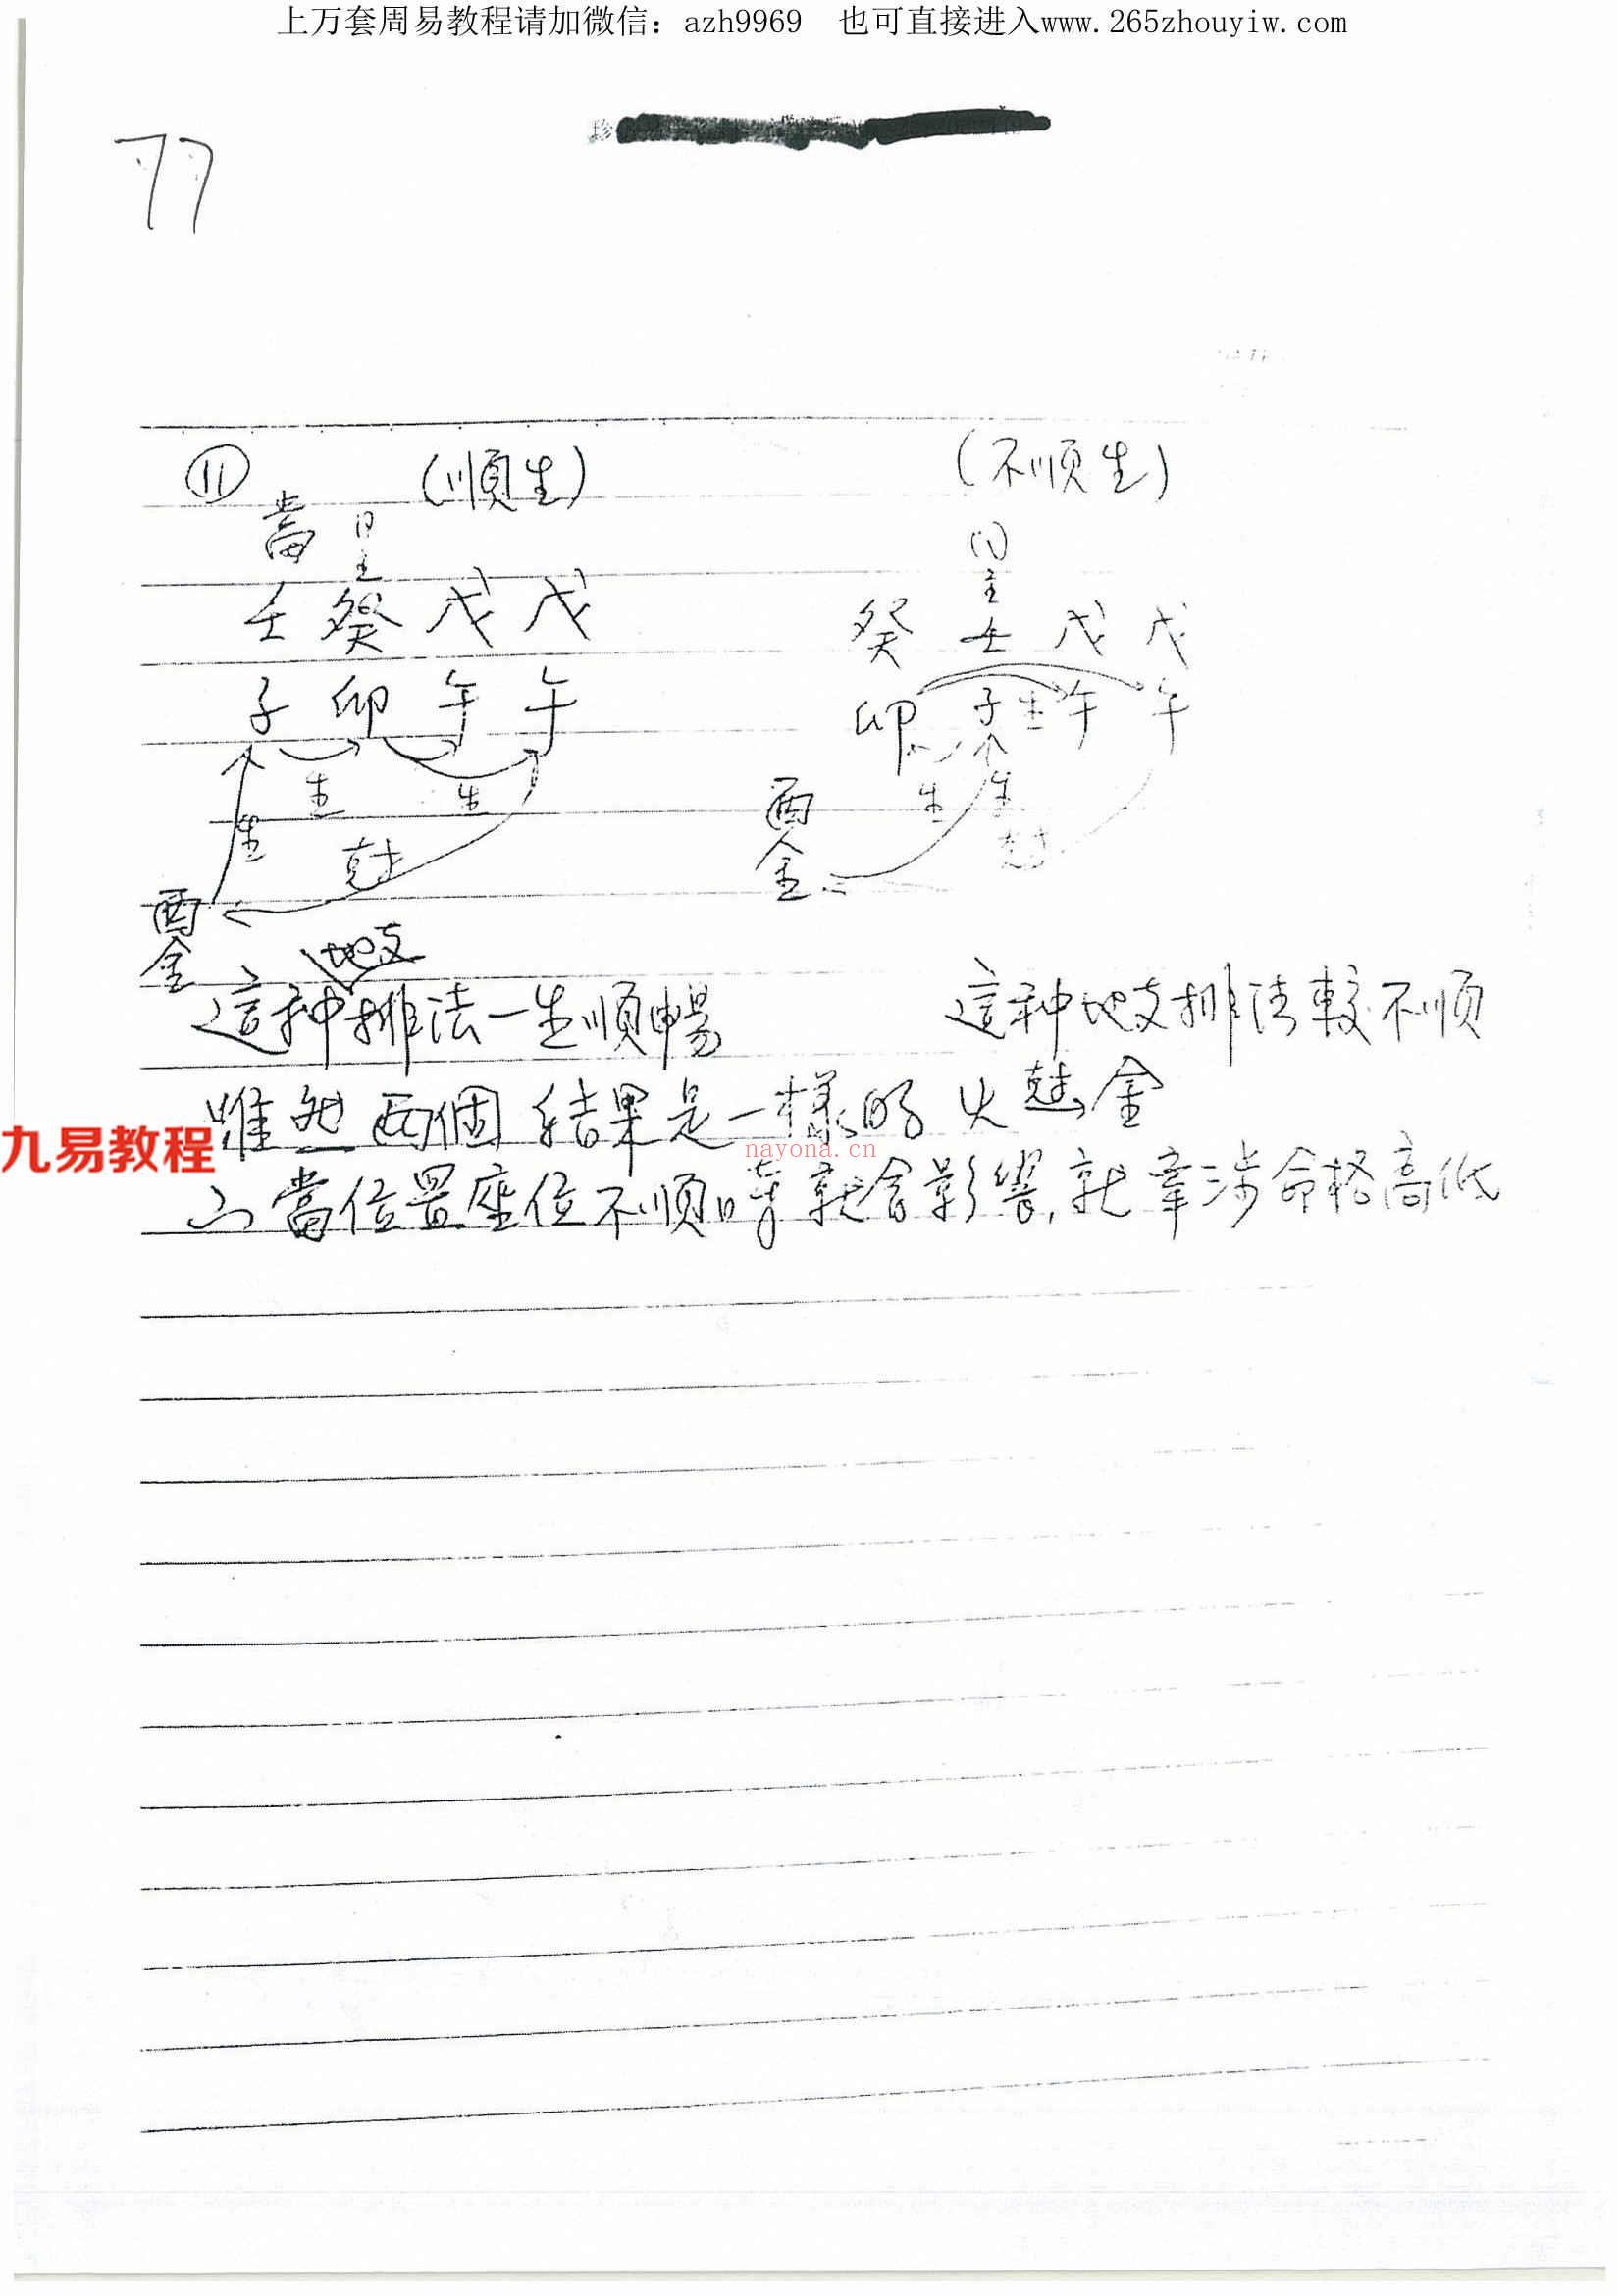 上万套周易教程请加微信：azh9969 也可直接进入www.265zhouyiw.com
77
⑪ (順生) (不顺生)
當 日主 日主
壬 癸 戊 戊 癸 壬 戊 戊
子 卯 午 午 卯 子 生 午 午
生 生 生 生
生 尅 尅
酉金 酉金
地支
這种排法一生順暢 這种地支排法較不顺
雖然两個結果是一樣的 火尅金
九易教程
nayona.cn
當位置座位不顺時就會影響,就牽涉命格高低